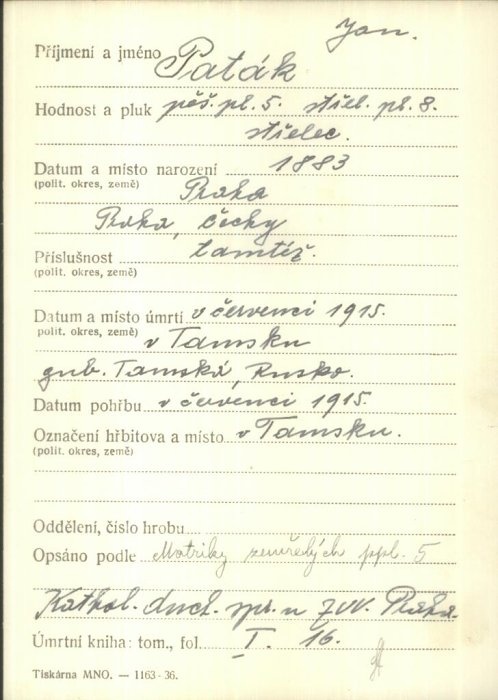 Jan.
Příjmení a jméno Paták
Hodnost a pluk pěš. pl. 5. střel. pl. 8.
střelec.
Datum a místo narození 1883
(polit. okres, země) Praha
Praha, čechy
Příslušnost tamtéž.
(polit. okres, země)
Datum a místo úmrtí v červenci 1915.
polit. okres, země) v Tamsku
gub. Tamská, Rusko.
Datum pohřbu v červenci 1915.
Označení hřbitova a místo v Tamsku.
(polit. okres, země)
Oddělení, číslo hrobu
Opsáno podle Matriky zemřelých ppl. 5
Kathol. duch. spr. u ZVV. Praha.
Úmrtní kniha: tom., fol. I. 16.
Tiskárna MNO. — 1163-36.